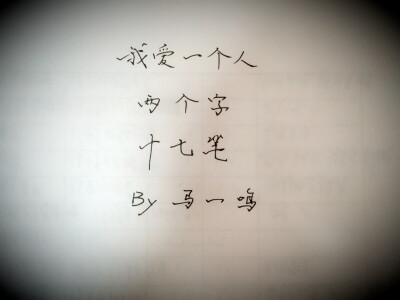 我爱一个人
两个字
十七笔
By 马一鸣